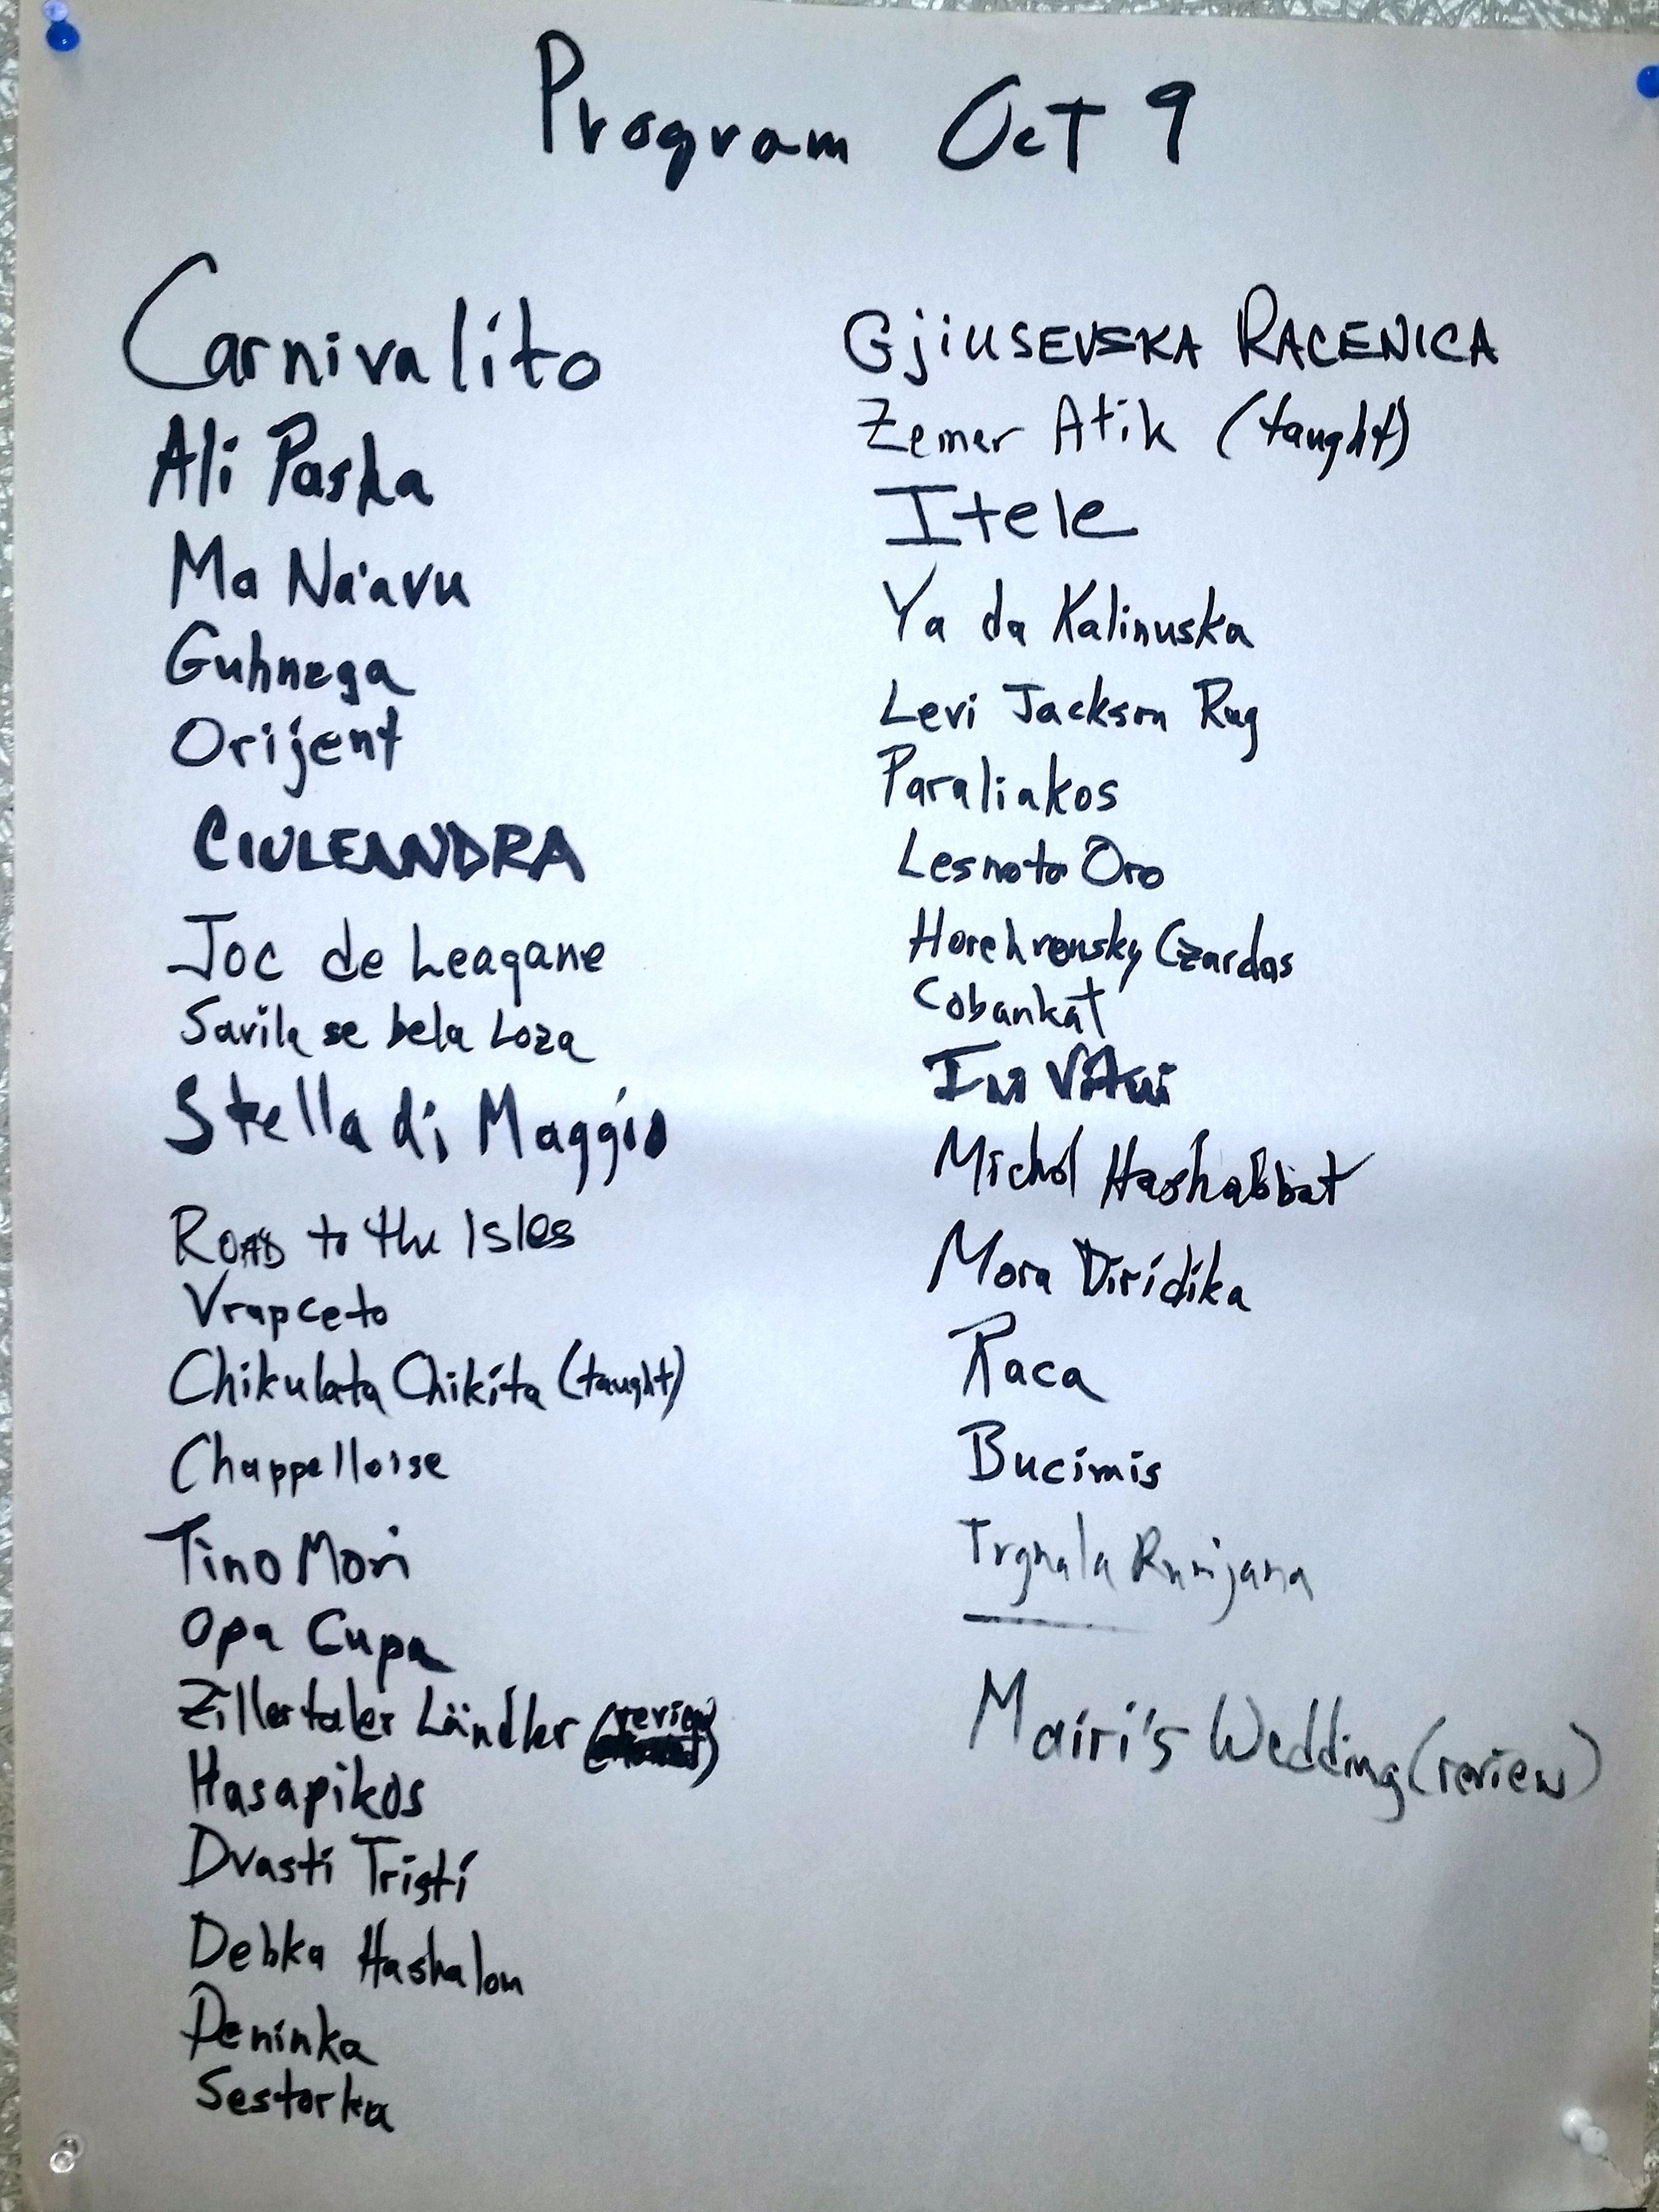 Program Oct 9
Carnivalito
Ali Pasha
Ma Na'avu
Guhnega
Orijent
CIULEANDRA
Joc de Leagane
Savila se bela Loza
Stella di Maggio
Road to the Isles
Vrapceto
Chikulata Chikita (taught)
Chappelloise
Tino Mori
Opa Cupa
Zillertaler Ländler (review)
Hasapikos
Dvasti Tristi
Debka Hashalom
Peninka
Sestorka
GjiuSEVSKA RACENICA
Zemer Atik (taught)
Itele
Ya da Kalinuska
Levi Jackson Rag
Paraliakos
Lesnoto Oro
Horehronsky Czardas
Cobankat
Michol Hashabbat
Mora Diridika
Raca
Bucimis
Trgnala Rumjana
Mairi's Wedding (review)